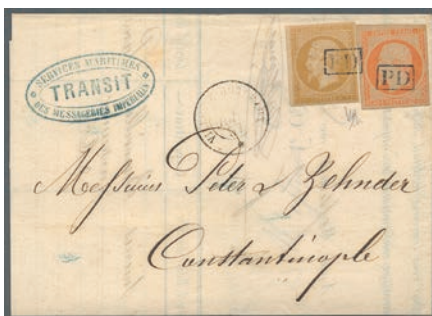 SERVICES MARITIMES
TRANSIT
DES MESSAGERIES IMPERIALES
PD
PD
Messieurs Peter & Zehnder
Constantinople